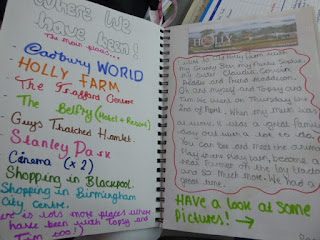 Where We
have been!
The main places...
Cadbury WORLD
HOLLY FARM
The Trafford Centre
The Belfry (Hotel + Resort)
Guys Thatched Hamlet.
Stanley Park
Cinema (x2)
Shopping in Blackpool.
Shopping in Birmingham
City Centre.
There is lots more places where
have been with Topsy and
Tim too!)
HOLLY
my Mummy
my Sister Claudia, Cousin
Maddie and
Oh and myself and Topsy and
Tim. We went on Thursday the
2nd of April. When my
as it was a great family
day out with a lot to do.
You can see and meet the animals
play
real farmer on the toy tractors
and so much more. We had a
great time.
HAVE a look at some
Pictures! →